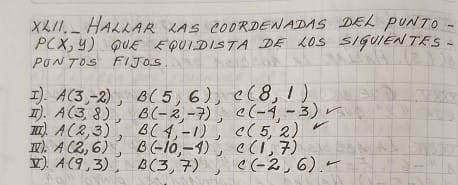 XLII._ HALLAR LAS COORDENADAS DEL PUNTO -
P(X,Y) QUE EQUIDISTA DE LOS SIGUIENTES -
PUNTOS FIJOS.
I). A(3,-2), B(5,6), C(8,1)
II). A(3,8), B(-2,-7), C(-4,-3) ✓
III). A(2,3), B(4,-1), C(5,2) ✓
IV). A(2,6), B(-10,-4), C(1,7)
V). A(9,3), B(3,7), C(-2,6). ✓